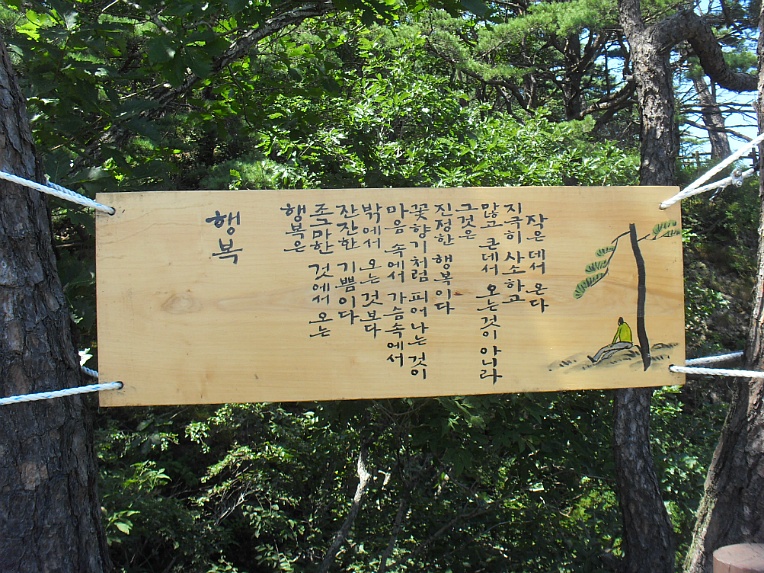 행복
행복은
조그마한 것에서 오는
잔잔한 기쁨이다
밖에서 오는 것보다
마음 속에서 가슴속에서
꽃향기처럼 피어나는 것이
진정한 행복이다
그것은
많고 큰데서 오는것이 아니라
지극히 사소하고
작은 데서 온다